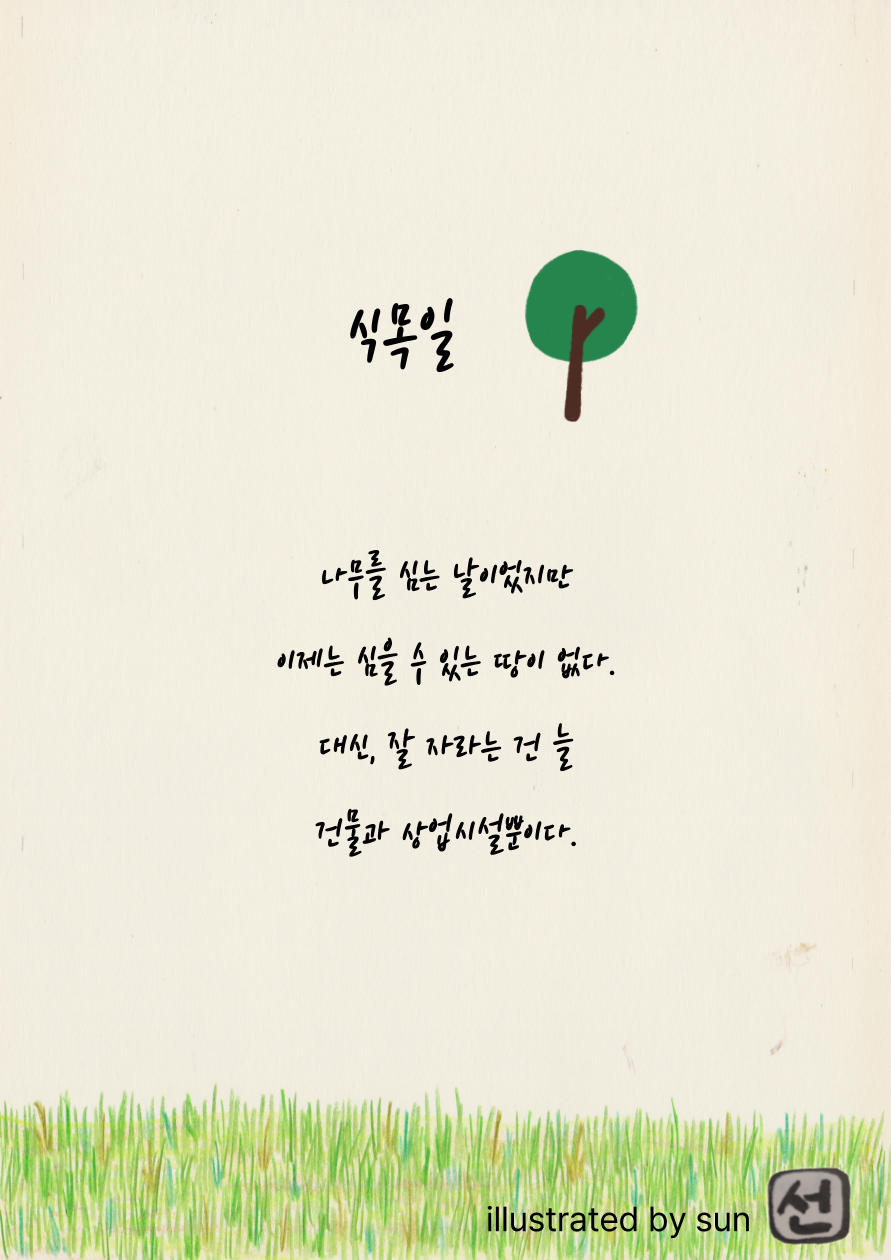 식목일
나무를 심는 날이었지만
이제는 심을 수 있는 땅이 없다.
대신, 잘 자라는 건 늘
건물과 상업시설뿐이다.
illustrated by sun
선